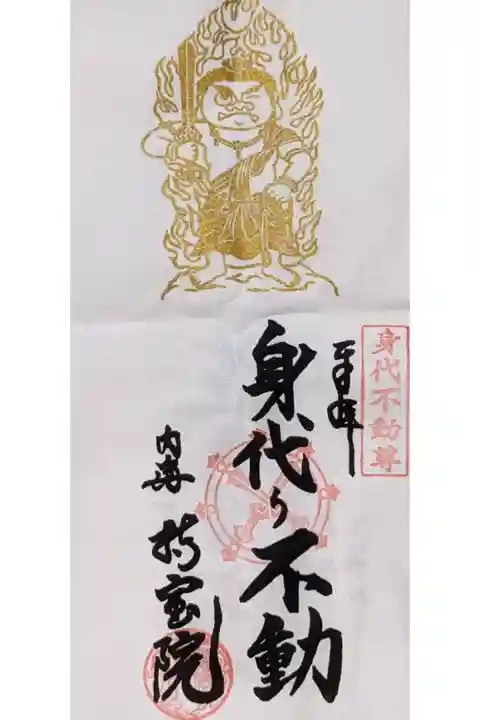 身代不動尊
奉拝
身代り不動
内海 持宝院